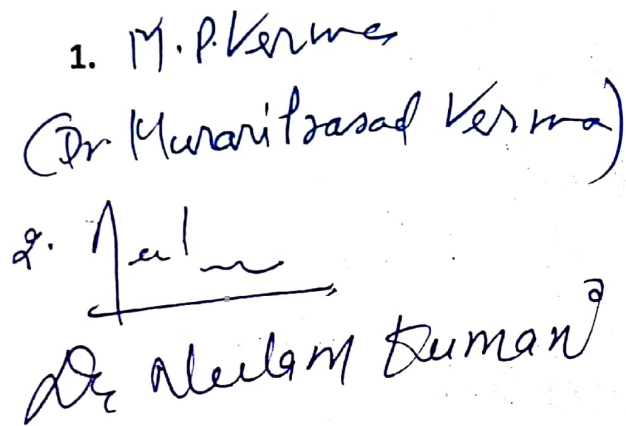 1. M.P. Verma
(Dr Murari Prasad Verma)
2. Neelam
Dr Neelam Kumari